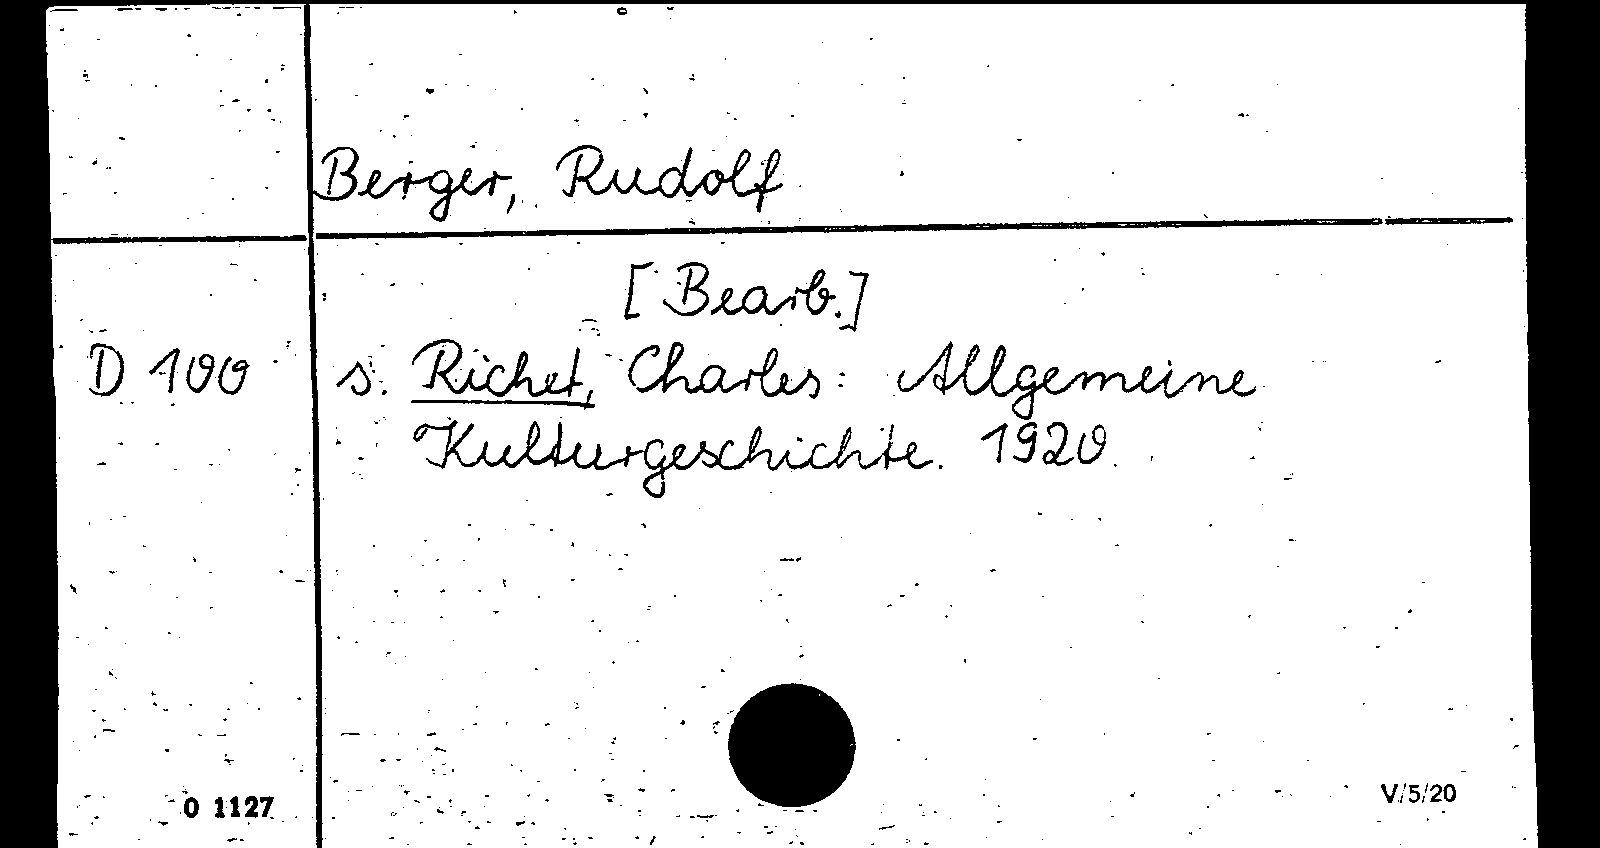 Berger, Rudolf
[Bearb.]
D 100 s. Richet, Charles: Allgemeine
Kulturgeschichte. 1920.
O 1127
V/5/20